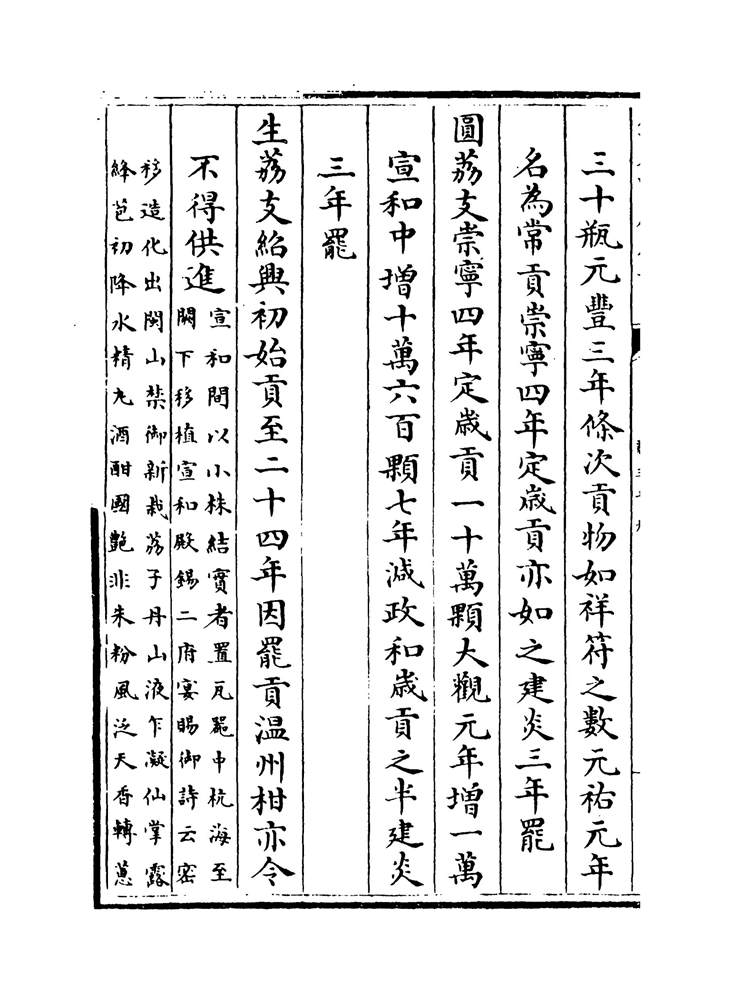 三十瓶元豐三年條次貢物如祥符之數元祐元年
名為常貢崇寧四年定歳貢亦如之建炎三年罷
圓荔支崇寧四年定歳貢一十萬顆大觀元年增一萬
宣和中增十萬六百顆七年減政和歳貢之半建炎
三年罷
生荔支紹興初始貢至二十四年因罷貢温州柑亦令
不得供進
宣和間以小株結實者置瓦器中杭海至
闕下移植宣和殿錫二府宴賜御詩云宻
移造化出閩山禁御新栽荔子丹山液乍凝仙掌露
絳苞初降水精丸酒酣國艶非朱粉風泛天香轉蕙